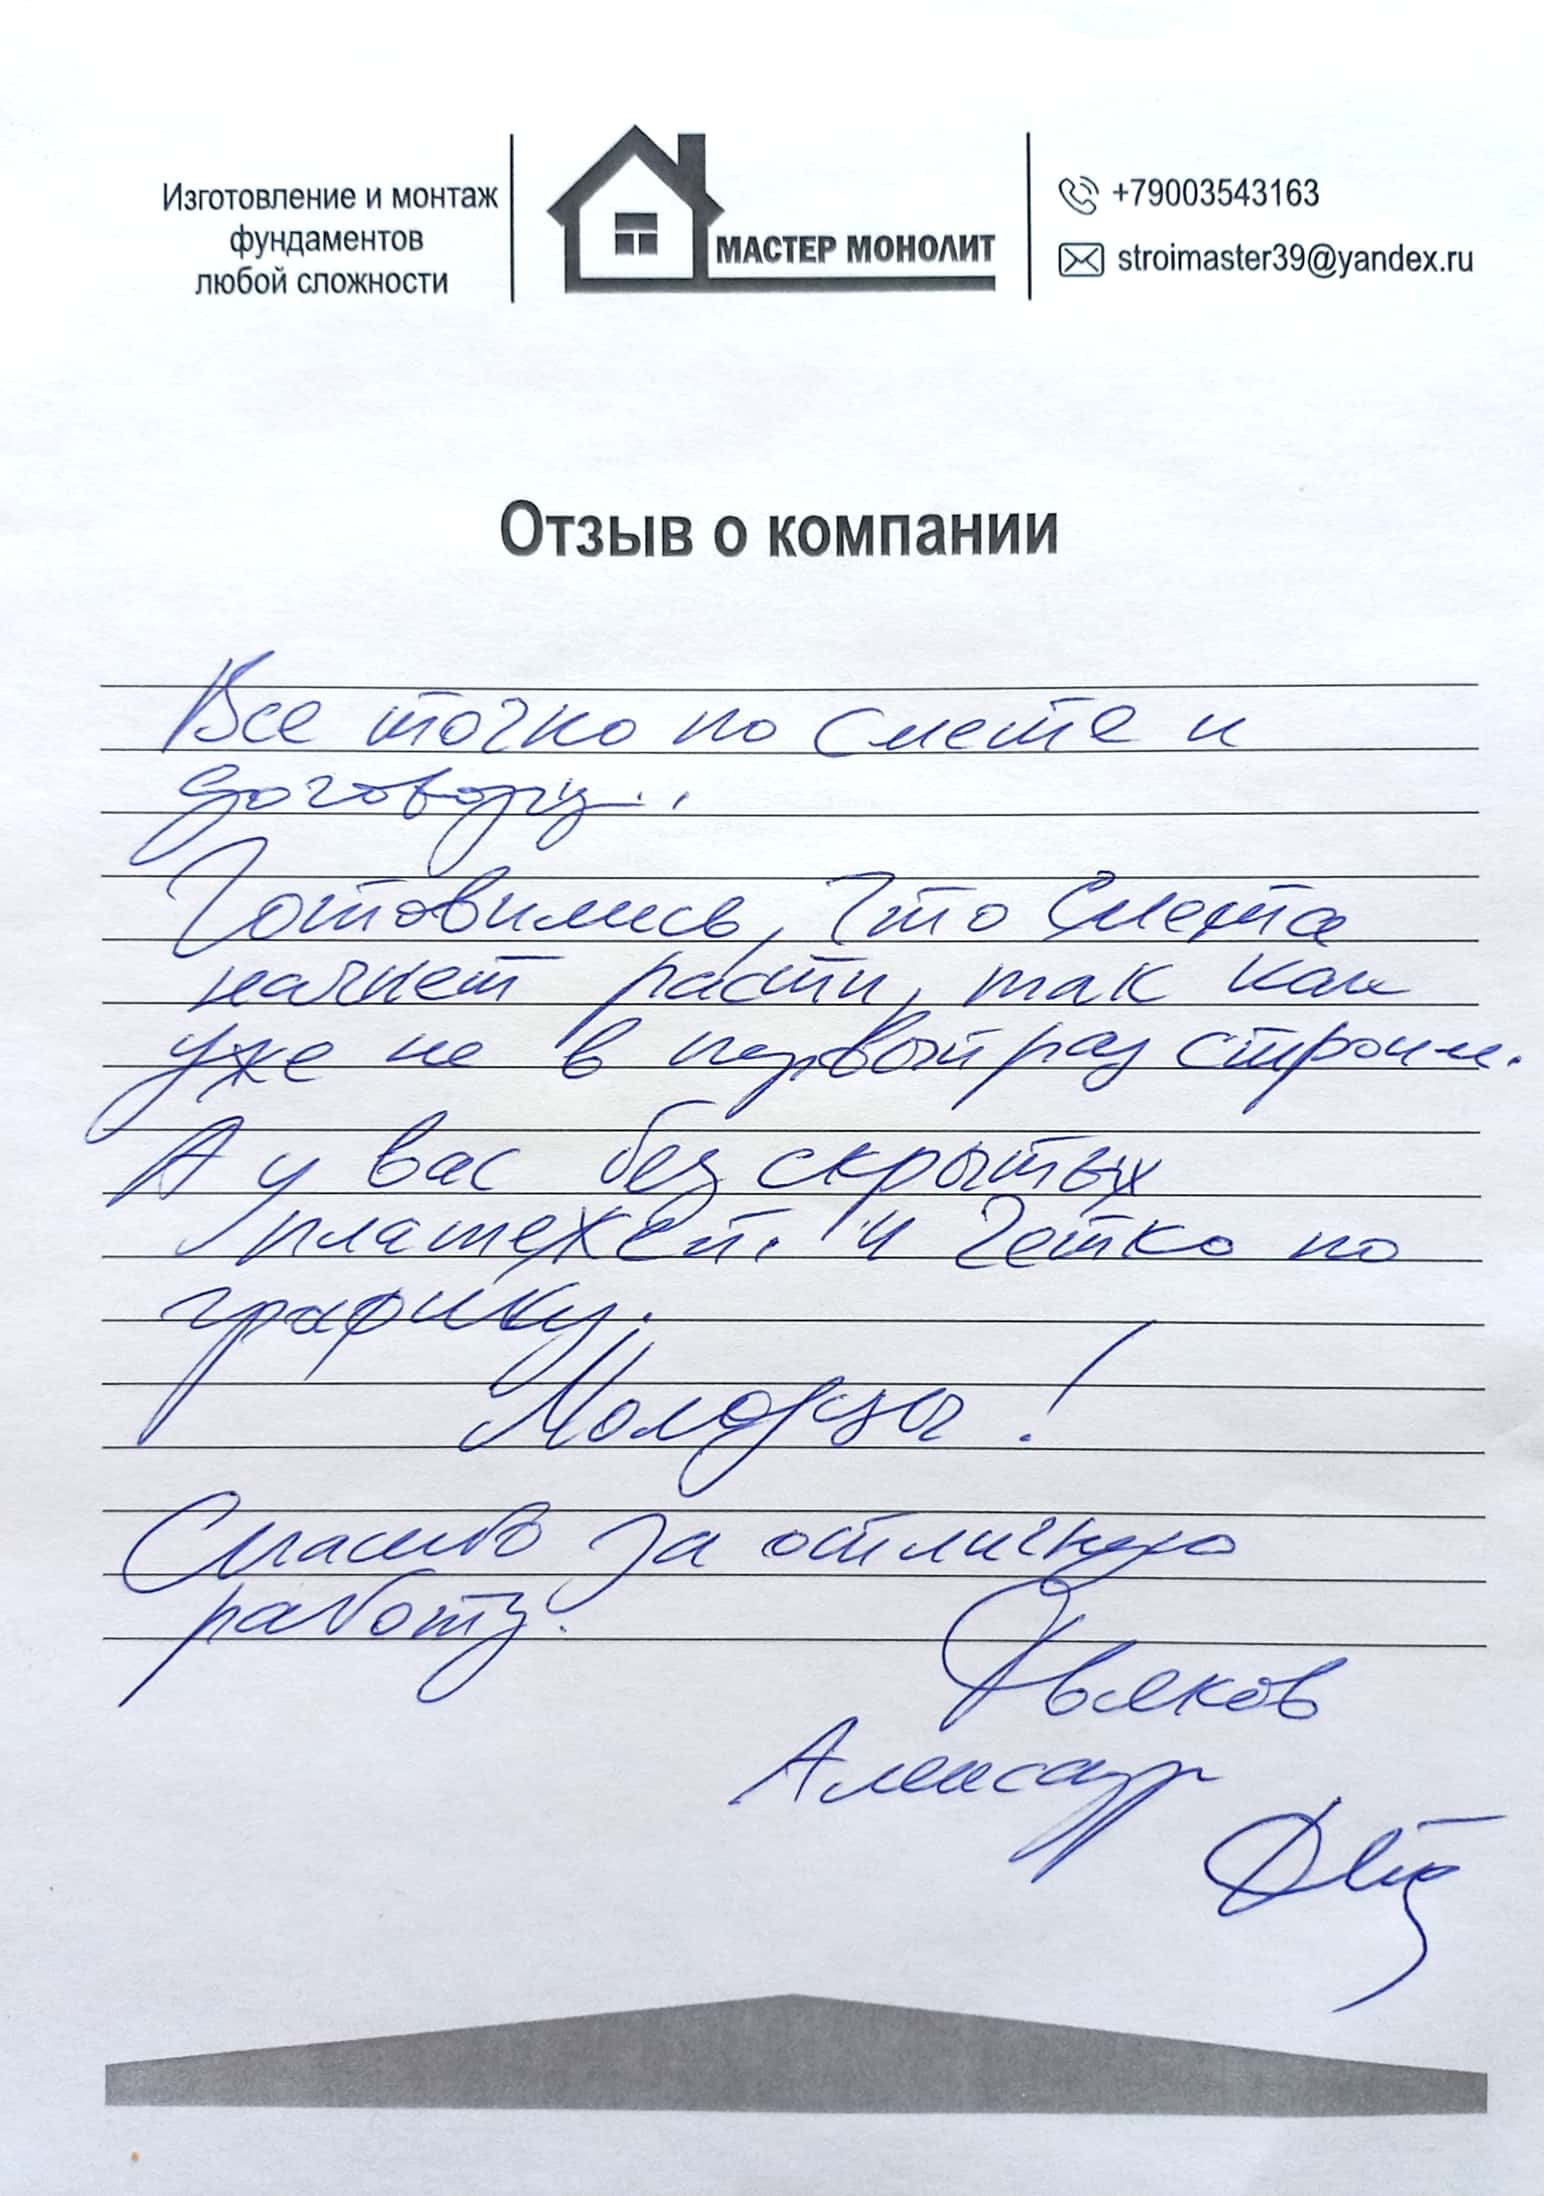 Изготовление и монтаж
фундаментов
любой сложности
МАСТЕР МОНОЛИТ
+79003543163
stroimaster39@yandex.ru
Отзыв о компании
Все точно по смете и
договору...
Готовились, что смета
начнет расти, так как
уже не в первый раз строим.
А у вас без скрытых
платежей. и четко по
графику.
Молодцы!
Спасибо за отличную
работу.
Дьяков
Александр